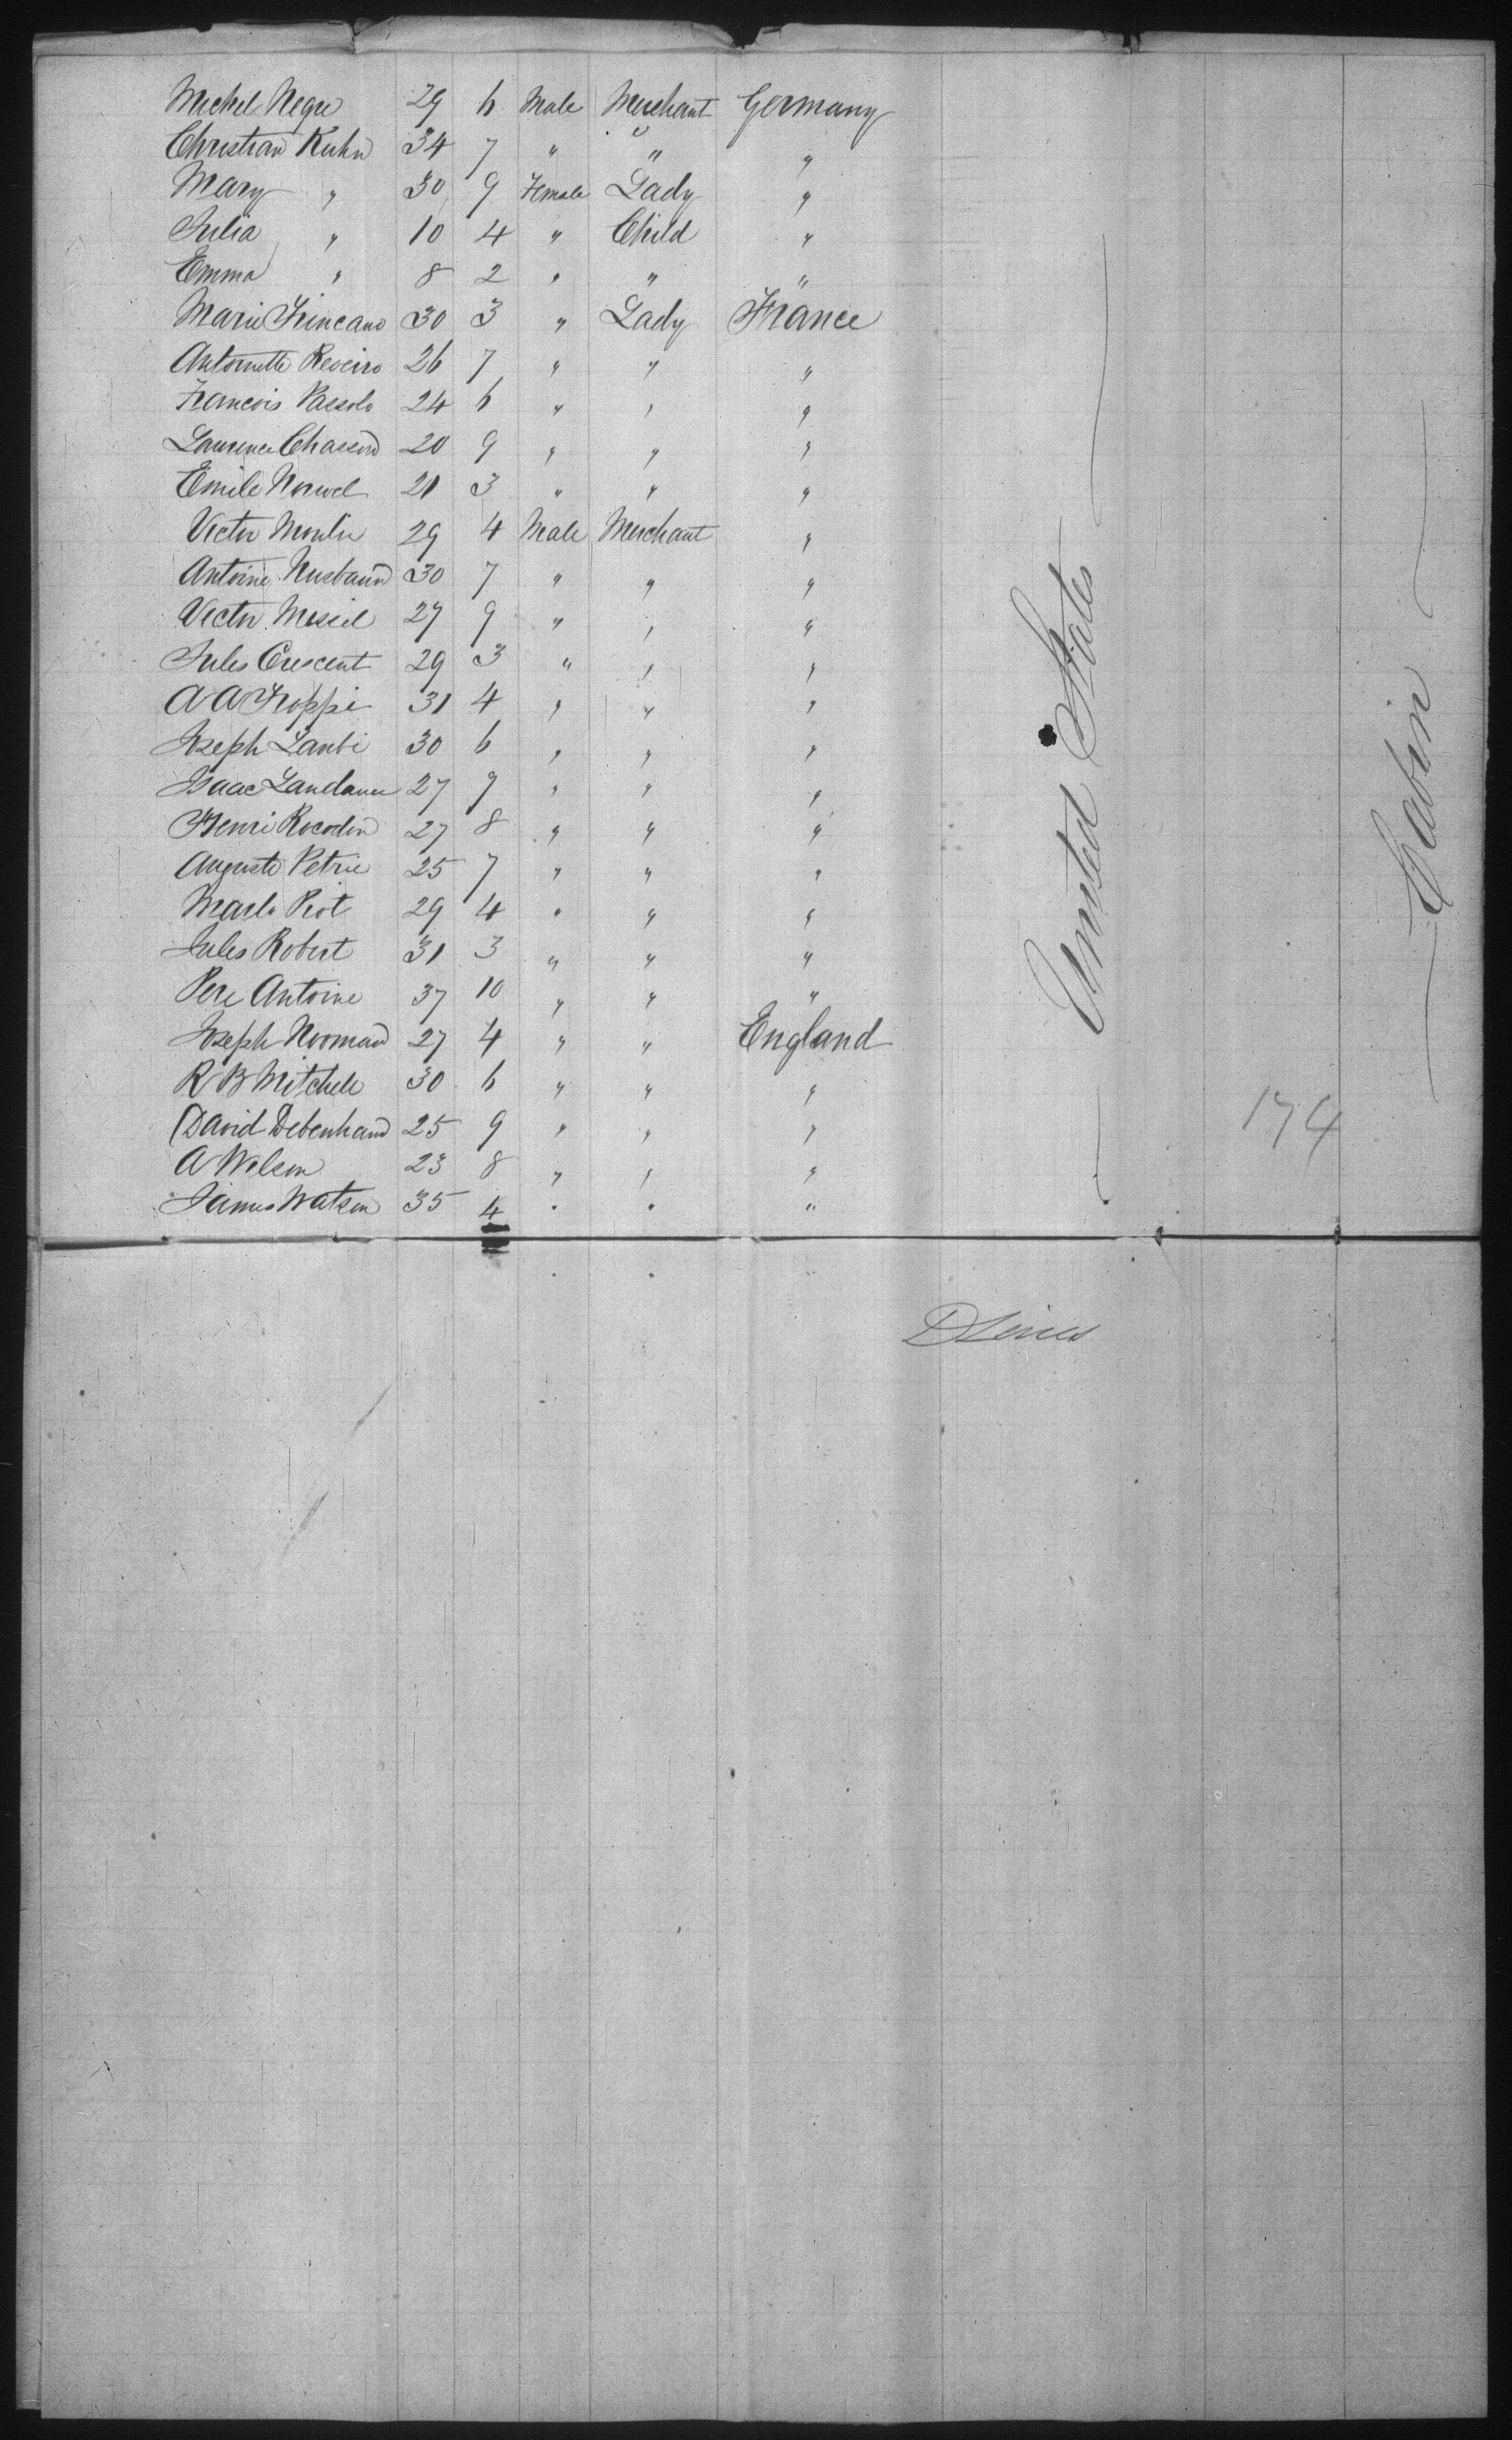 Michel Negre 29 6 Male Merchant Germany
Christian Kuhn 34 7 " " "
Mary " 30 9 Female Lady "
Julia " 10 4 " Child "
Emma " 8 2 " " "
Marie Trincano 30 3 " Lady France
Antoinette Reveiro 26 7 " " "
Francois Passolo 24 6 " " "
Laurence Chassin 20 9 " " "
Emile Norwel 21 3 " " "
Victor Moulin 29 4 Male Merchant "
Antoine Nusbaum 30 7 " " "
Victor Messil 27 9 " " "
Jules Crescent 29 3 " " "
A A Froppi 31 4 " " "
Joseph Lanbi 30 6 " " "
Isaac Landauer 27 9 " " "
Henri Rocodin 27 8 " " "
Auguste Petrie 25 7 " " "
Piot 29 4 " " "
Jules Robert 31 3 " " "
Pere Antoine 37 10 " " "
Joseph Norman 27 4 " " England
R B Mitchele 30 6 " " "
David Debenham 25 9 " " "
A Wilson 23 8 " " "
James Watson 35 4 " " "
United States
174
Cabin